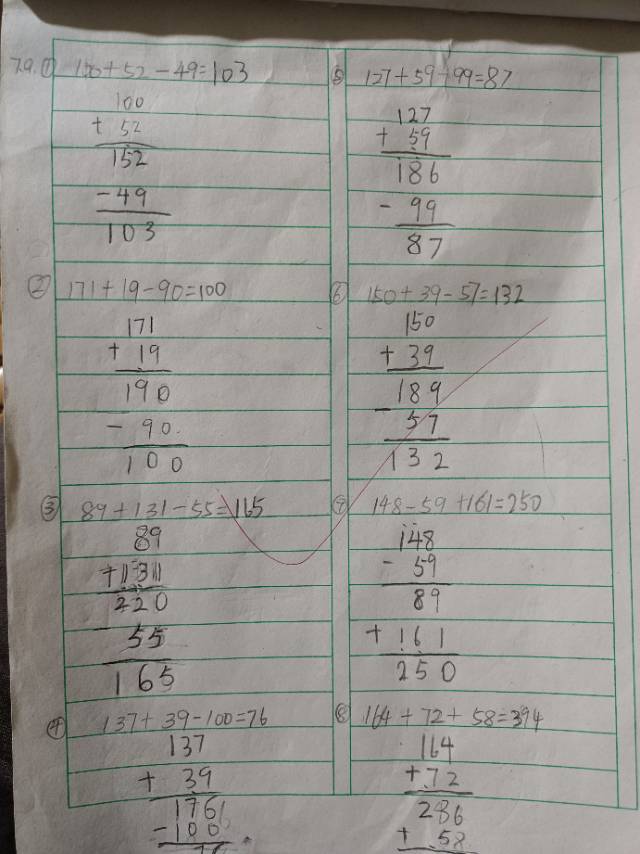 7.9.① 100+52-49=103
100
+ 52
152
-49
103
② 171+19-90=100
171
+ 19
190
- 90
100
③ 89+131-55=165
89
+131
220
- 55
165
④ 137+39-100=76
137
+ 39
176
-100
⑤ 127+59-99=87
127
+ 59
186
- 99
87
⑥ 150+39-57=132
150
+ 39
189
- 57
132
⑦ 148-59+161=250
148
- 59
89
+ 161
250
⑧ 164+72+58=394
164
+72
286
+ 58